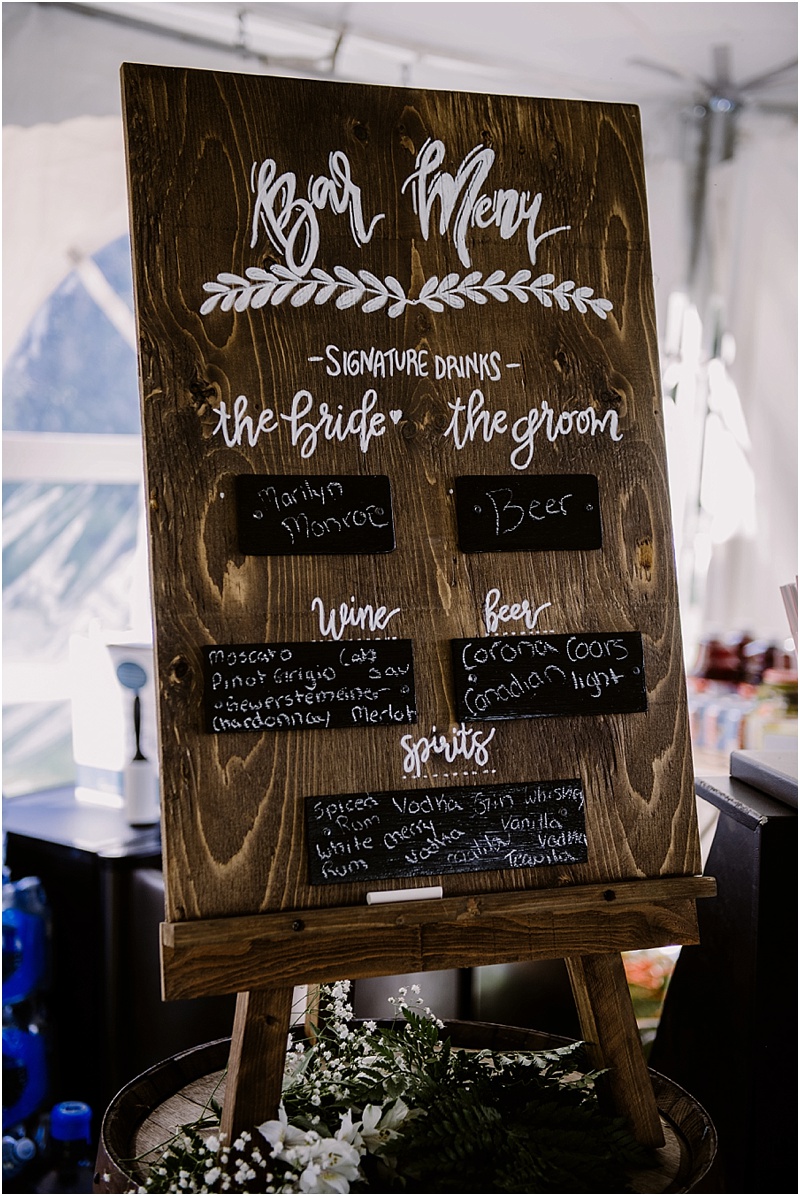 Bar Menu
-SIGNATURE DRINKS-
the bride♥ the groom
Marilyn
Monroe
Beer
wine
Moscato Cab
Pinot Girigio Sav
Gewerstemeiner
Chardonnay Merlot
beer
Corona Coors
Canadian light
spirits
Spiced Vodka Gin Whiskey
Rum
White Cherry Vanilla
Rum Vodka Vodka
Tequila